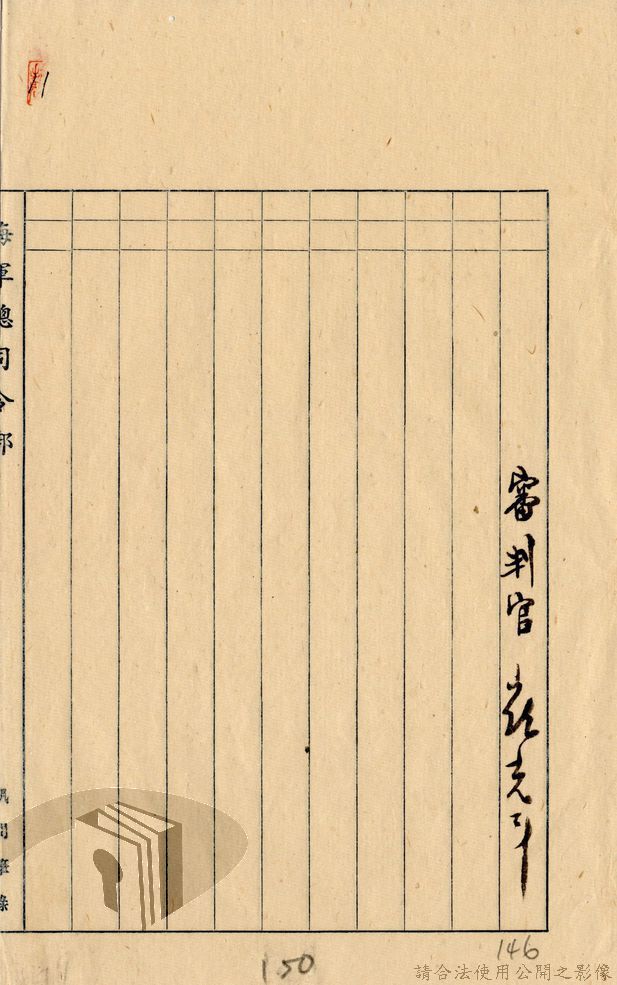 審判官
海軍總司令部
訊問筆錄
150
146
請合法使用公開之影像